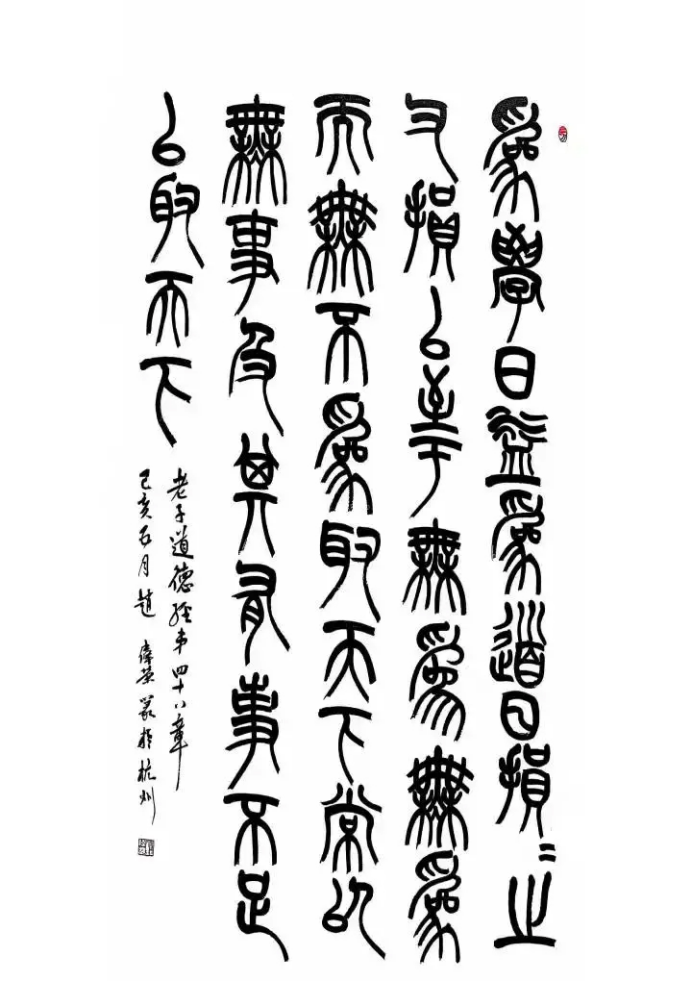 為學日益為道日損〻之
又損以至于無為無為
而無不為取天下常以
無事及其有事不足
以取天下
老子道德經弟四十八章
己亥五月趙偉榮篆於杭州